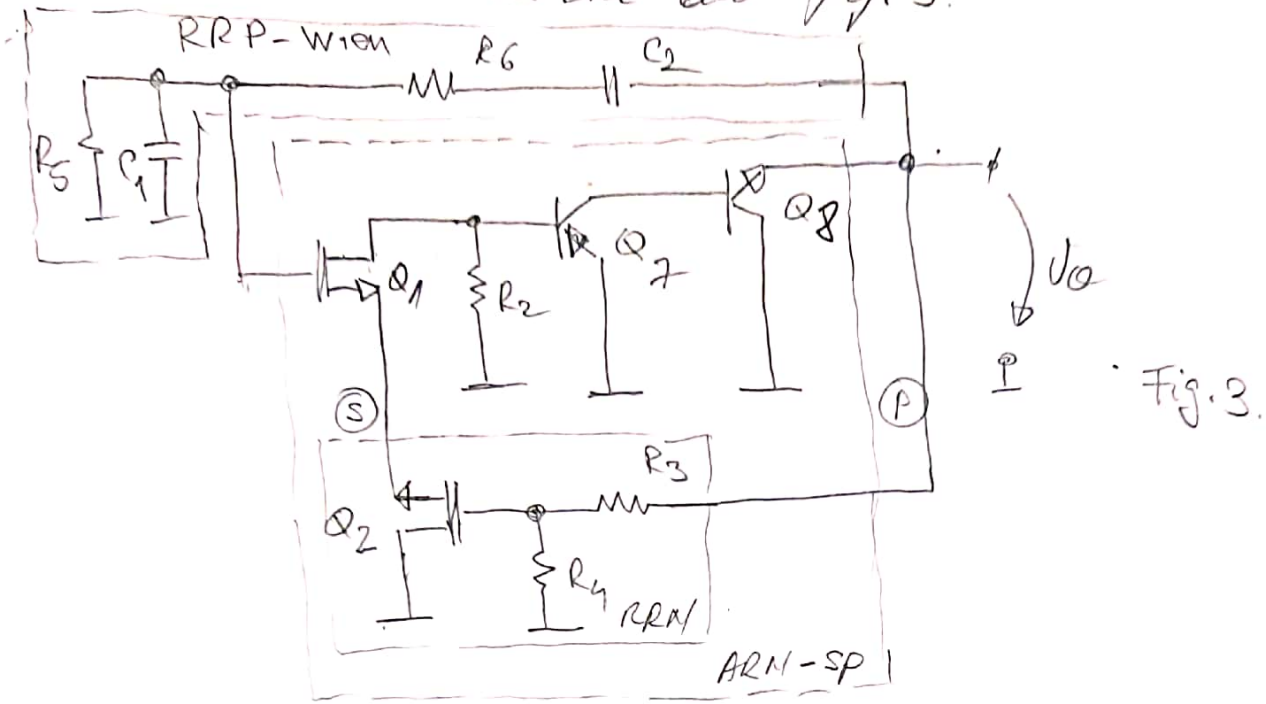 fig. 3.
RRP-Wien
R6
C2
R5
C1
Q1
R2
Q7
Q8
UO
Fig. 3.
S
P
R3
Q2
R4
RRN
ARN-SP